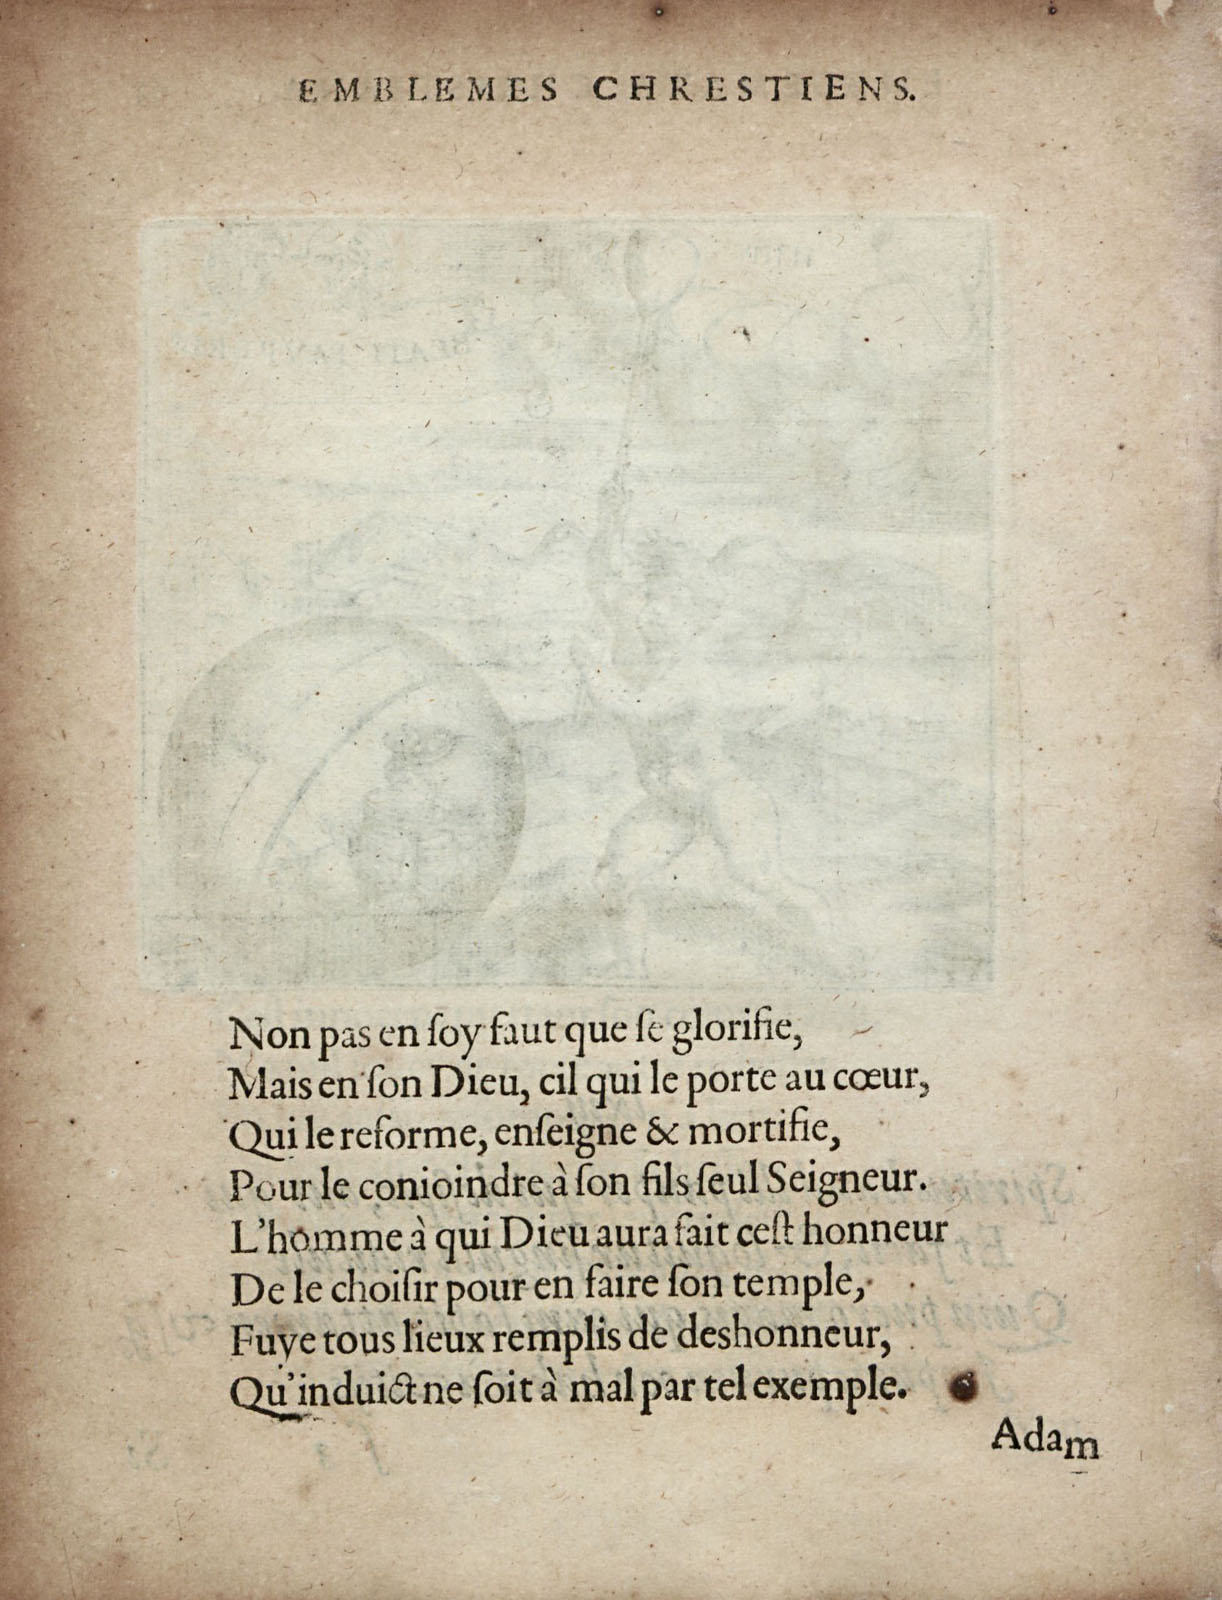 EMBLEMES CHRESTIENS.
Non pas en ſoy faut que ſe glorifie,
Mais en ſon Dieu, cil qui le porte au cœur,
Qui le reforme, enſeigne & mortifie,
Pour le conioindre à ſon fils ſeul Seigneur.
L'homme à qui Dieu aura fait ceſt honneur
De le choiſir pour en faire ſon temple,
Fuye tous lieux remplis de deshonneur,
Qu'induict ne ſoit à mal par tel exemple.
Adam